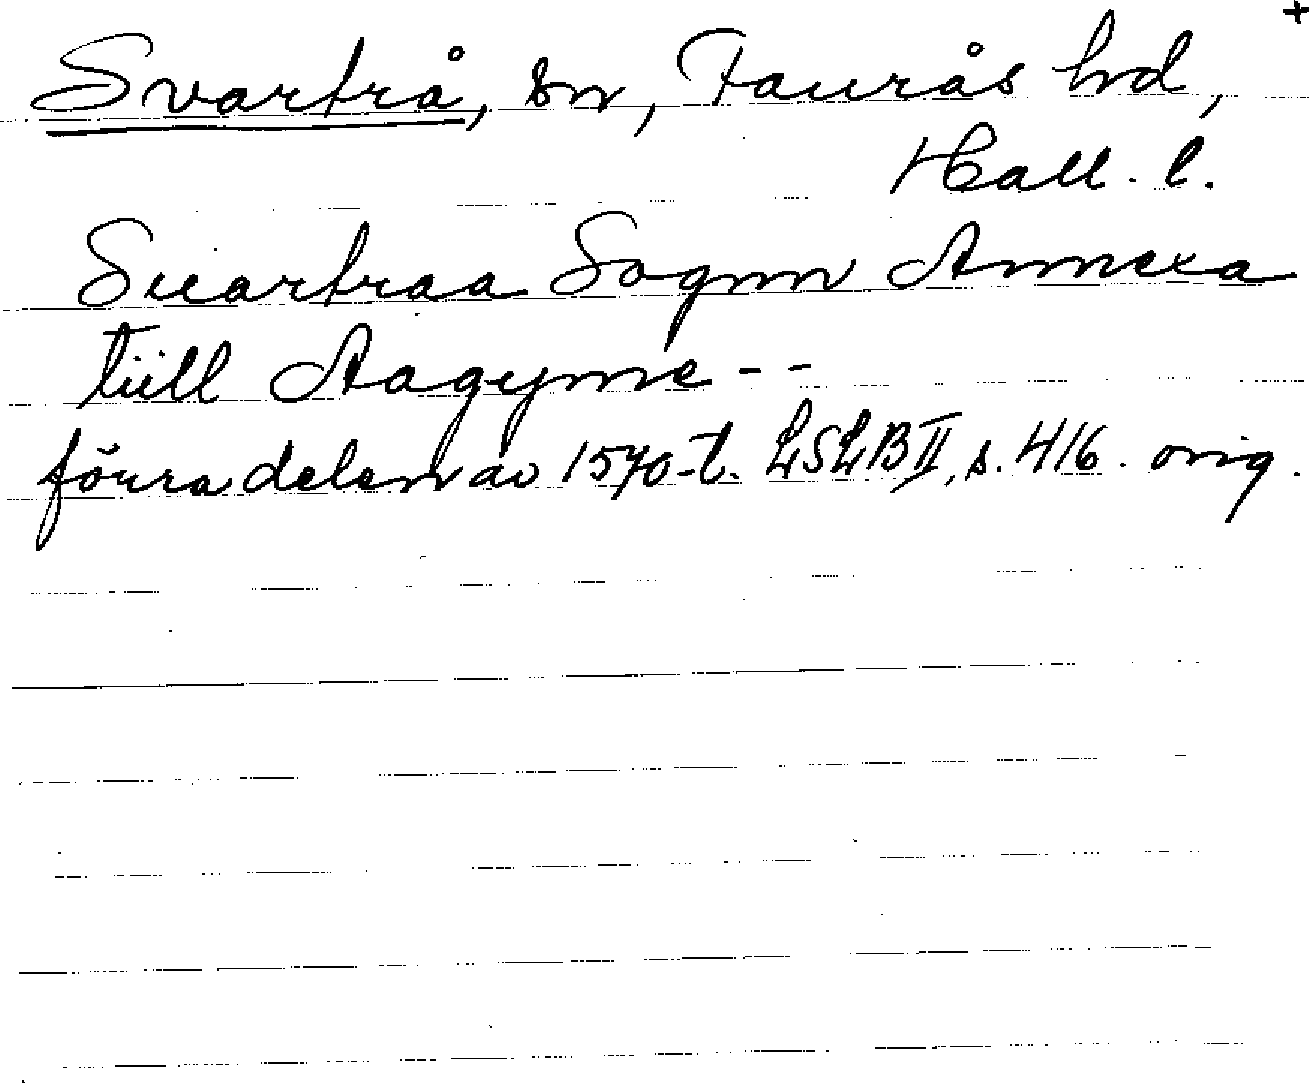 +
Svartrå, sn, Faurås hd,
Hall. l.
Suartraa Sognn Annexa
tiill Aagynne --
förra delen av 1570-t. LSLB II, s. 416. orig.